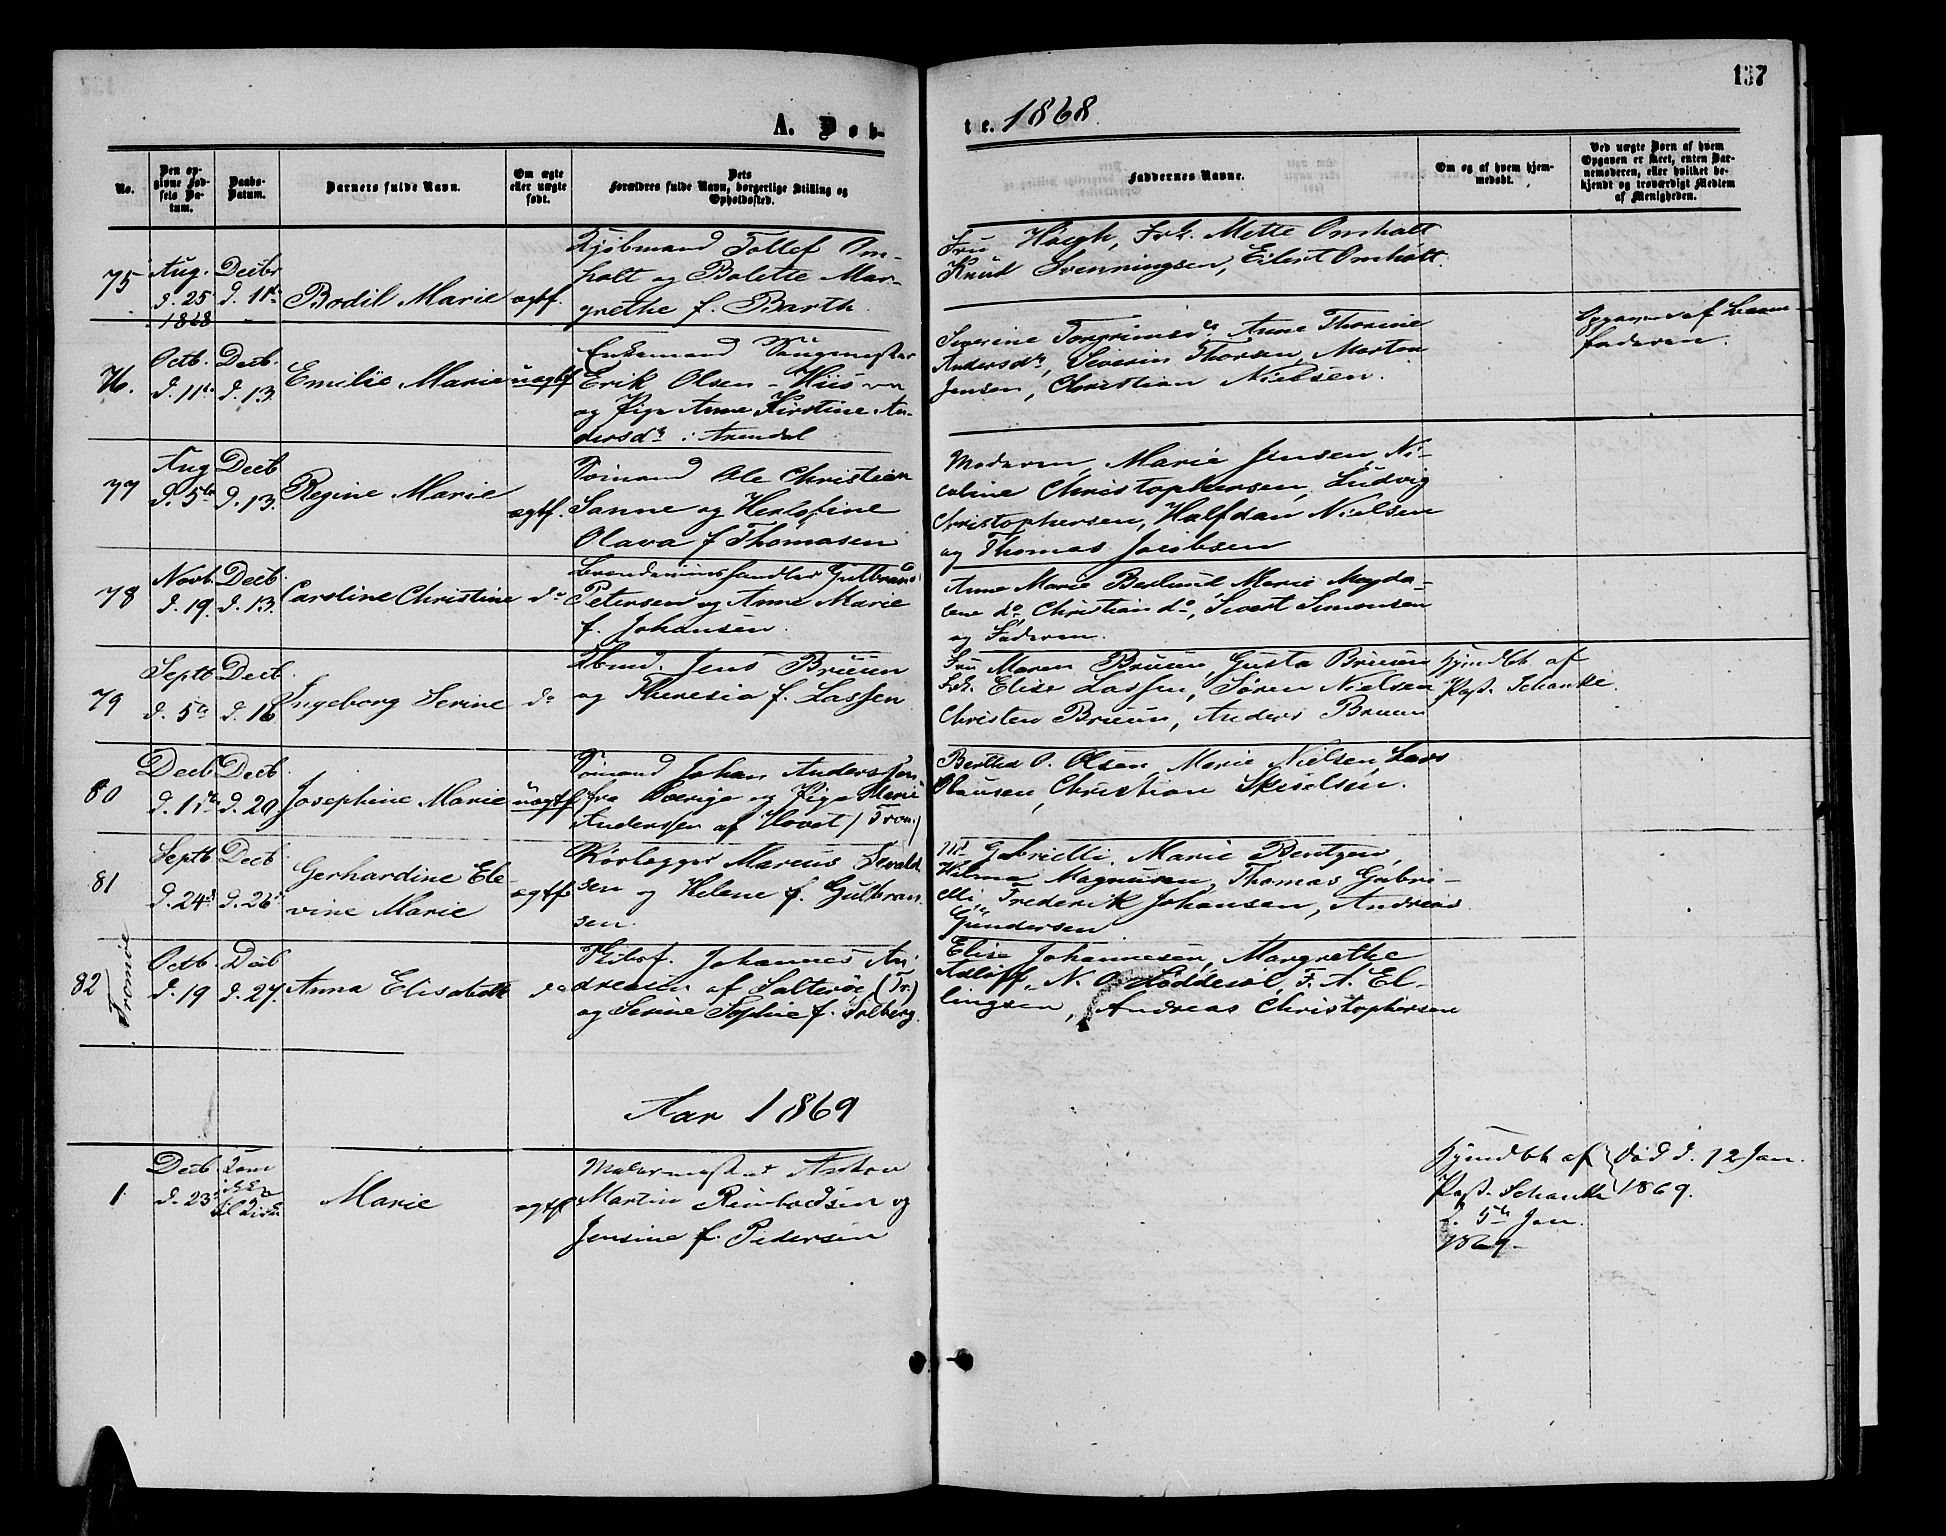 137
A. Døb-
te. 1868.
No.
Den op-
givne Fød-
sels Da-
tum.
Daabs-
Datum.
Barnets fulde Navn.
Om ægte
eller uægte
født.
Dets
Forældres fulde Navn, borgerlige Stilling og
Opholdssted.
Faddernes Navne.
Om og af hvem hjem-
medøbt.
Ved uægte Børn af hvem
Opgaven er skeet, enten Bar-
nemoderen, eller hvilket be-
kjendt og troværdigt Medlem
af Menigheden.
75
Aug.
d. 25
1868
Decbr
d. 11te
Bodil Marie
ægtf.
Kjøbmand Tellef Om-
holt og Bolette Mar-
grethe f. Barth.
Fru Høegh, Frk. Mette Omholt
Knud Svenningsen, Eilert Omholt.
76.
Octb.
d. 11te
Decb.
d. 13
Emilie Marie
uægtf
Enkemand
Erik Olsen - Hiis
og Pige Anne Kirstine An-
dersdr i Arendal
Severine Torgrimsdr Anne Thorine
Andersdr, Severin Thorsen, Morten
Jensen, Christian Nielsen.
Opgaven af Barne-
faderen.
77
Aug
d. 5te
Decb
d. 13.
Regine Marie
ægtf.
Sømand Ole Christian
Sanne og Herlofine
Olava f Thomasen
Moderen, Marie Jensen, Ni-
coline Christophersen, Ludvig
Christophersen, Halfdan Nielsen
og Thomas Jacobsen
78
Novb.
d. 19.
Decb.
d. 13.
Caroline Christine
do
Brændeviinshandler Gulbrand
Petersen og Anne Marie
f. Johansen.
Anne Marie Beslund, Marie Magda-
lene do, Christian do, Sivert Simonsen
og Faderen.
79
Septb
d. 5te
Decb.
d. 16
Ingeborg Serine
do
Kbmd. Jens Bruun
og Theresia f. Lassen
Fru Maren Bruun, Gusta Bruun
Frk. Elise Lassen, Søren Nielsen
Christen Bruun, Anders Bruun
Hjmdbt af
Past. Schanke.
80
Decb
d. 1ste
Decb.
d. 20.
Josephine Marie
uægtf
Sømand Johan Anderssen
fra Sverige og Pige Marie
Anderssen af Hovet (Trom.)
Berthea O. Olsen, Marie Nielsen, Lars
Olausen, Christian Skiselsen.
81
Septb
d. 24de
Decb
d. 26
Gerhardine Ele-
vine Marie
ægtf
Rørlegger Marcus Sevald-
sen og Helene f. Gulbran-
sen.
Md Gabrielli, Marie Bentzen,
Hilma Magnusen, Thomas Gabri-
elli, Frederik Johansen, Andreas
Gundersen
82
Tromø
Octb.
d. 19
Decb
d. 27.
Anna Elisabeth
do
Skibsf. Johannes An-
dreasen af Salterøe (Tr.)
og Serine Sophie f. Solberg.
Elise Johannesen, Margrethe
Adloff, N. O. Løddesøl, F. A. El-
lingsen, Andreas Christophersen
Aar 1869
1
Decb
d. 23
Marie
ægtf
Malermester Anton
Martin Reinhodsen og
Jensine f. Pedersen
Hjmdbt af
Past. Schanke
d. 5te Jan.
1869.
død d. 12 Jan.
1869.